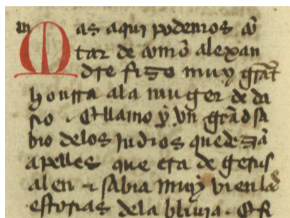 Mas aqui podemos cō
tar de como alexan
dre fizo muy grāt
honrra ala muger de da
rio ⁊ et llamo y vn grād sa
bio delos iudios que dezia
apelles que era de gerus
alen ⁊ sabia muy bien las
estorias dela bliuia